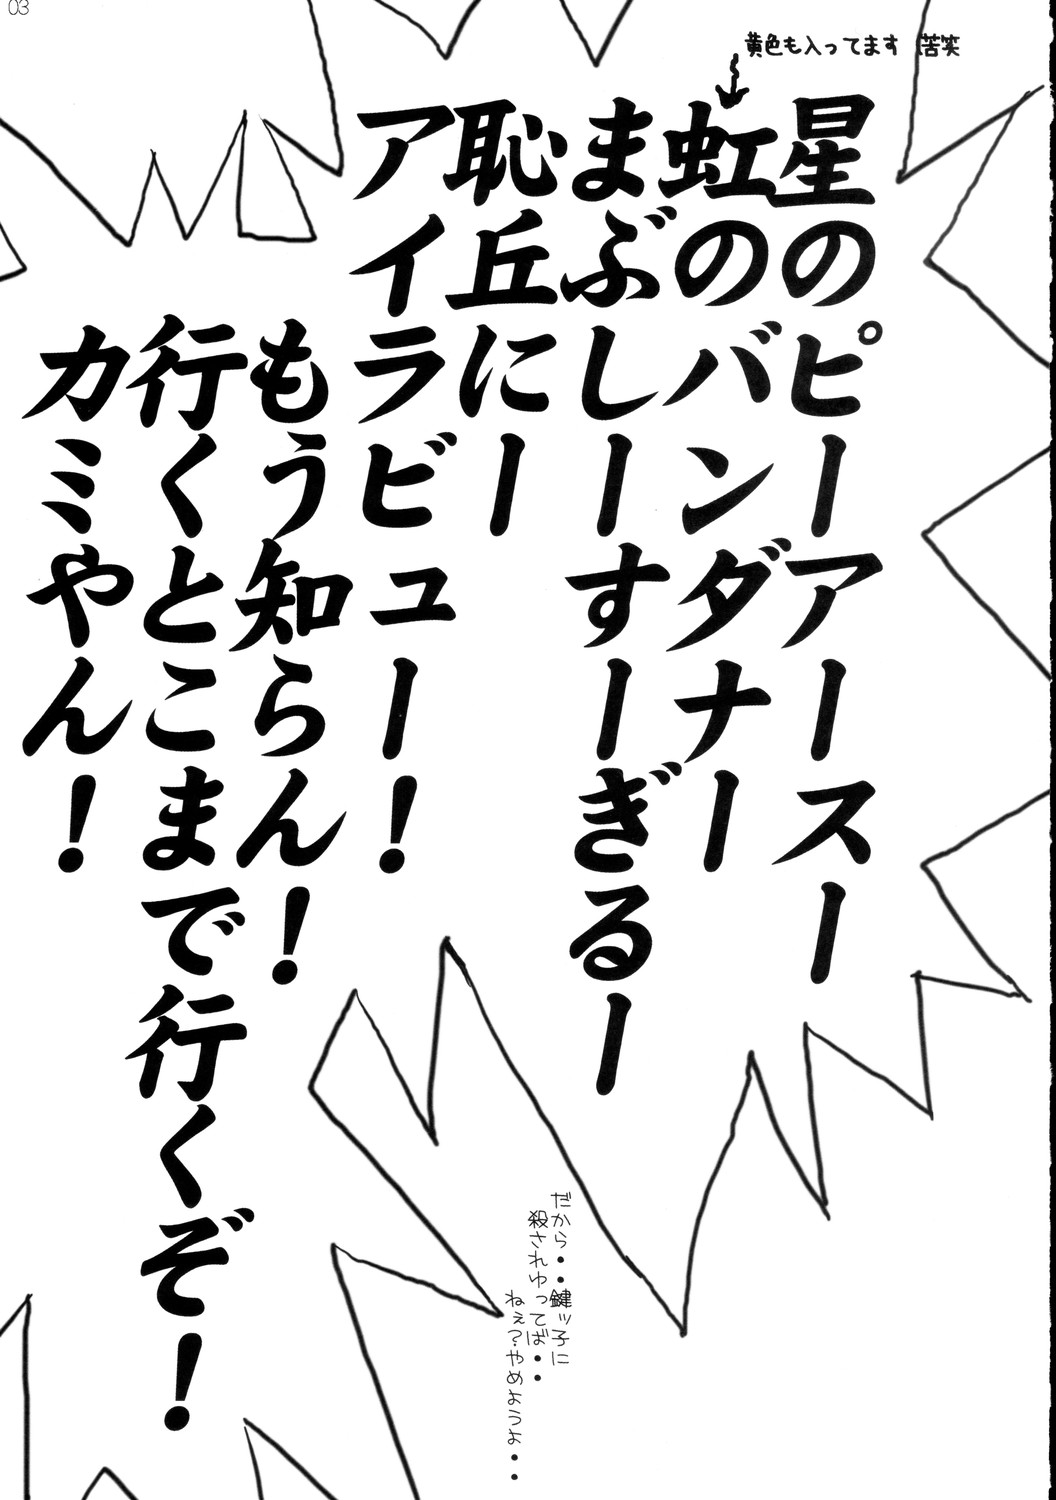 03
黄色も入ってます 苦笑
星のピーアースー
虹のバンダナー
まぶしーすーぎるー
恥丘にー
アイラビュー！
もう知らん！
行くとこまで行くぞ！
カミやん！
だから・・鍵ッ子に
殺されゆってば・・
ねぇ？やめようよ・・